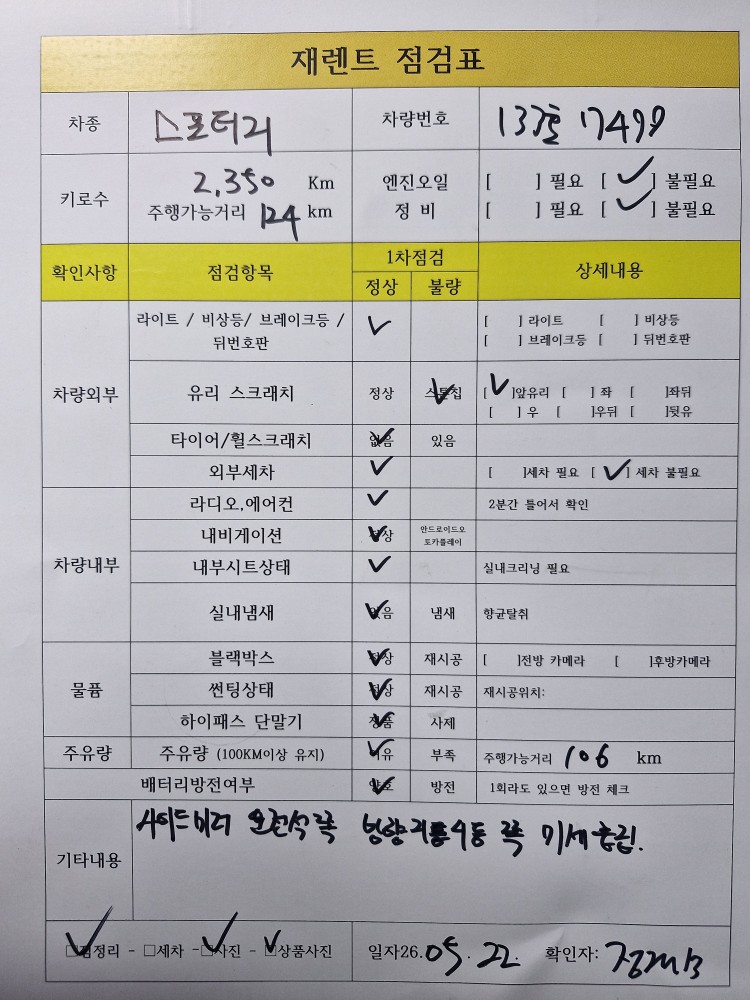 재렌트 점검표
차종 스포티지 차량번호 137호 7499
키로수 2,350 Km 엔진오일 [ ] 필요 [ ✓ ] 불필요
주행가능거리 124 km 정 비 [ ] 필요 [ ✓ ] 불필요
확인사항 점검항목 1차점검 상세내용
정상 불량
차량외부 라이트 / 비상등/ 브레이크등 / 뒤번호판 ✓ [ ] 라이트 [ ] 비상등
[ ] 브레이크등 [ ] 뒤번호판
유리 스크래치 정상 스톤칩 ✓ [ ✓ ]앞유리 [ ] 좌 [ ]좌뒤
[ ] 우 [ ]우뒤 [ ]뒷유
타이어/휠스크래치 없음 ✓ 있음
외부세차 ✓ [ ]세차 필요 [ ✓ ] 세차 불필요
차량내부 라디오,에어컨 ✓ 2분간 틀어서 확인
내비게이션 정상 ✓ 안드로이드오토카플레이
내부시트상태 ✓ 실내크리닝 필요
실내냄새 없음 ✓ 냄새 향균탈취
물품 블랙박스 정상 ✓ 재시공 [ ]전방 카메라 [ ]후방카메라
썬팅상태 정상 ✓ 재시공 재시공위치:
하이패스 단말기 정품 ✓ 사제
주유량 주유량 (100KM이상 유지) ✓ 부족 주행가능거리 106 km
배터리방전여부 양호 ✓ 방전 1회라도 있으면 방전 체크
기타내용 사이드미러 운전석쪽 쪽 미세흠집.
✓ - □세차 - ✓ 사진 - ✓ 상품사진 일자26. 05. 22. 확인자: